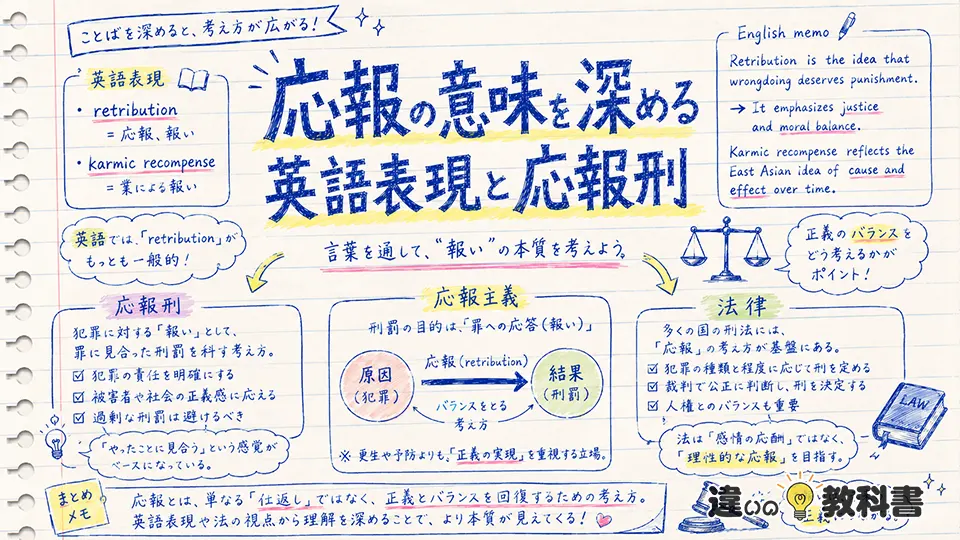 ことばを深めると、考え方が広がる！
応報の意味を深める
英語表現と応報刑
言葉を通して、“報い”の本質を考えよう。
英語表現
• retribution
= 応報、報い
• karmic recompense
= 業による報い
English memo
Retribution is the idea that
wrongdoing deserves punishment.
→ It emphasizes justice
and moral balance.
Karmic recompense reflects the
East Asian idea of cause and
effect over time.
英語では、「retribution」が
もっとも一般的！
正義のバランスを
どう考えるかが
ポイント！
応報刑
犯罪に対する「報い」として、
罪に見合った刑罰を科す考え方。
☑ 犯罪の責任を明確にする
☑ 被害者や社会の正義感に応える
☑ 過剰な刑罰は避けるべき
「やったことに見合う」という感覚が
ベースになっている。
応報主義
刑罰の目的は、「罪への応答（報い）」
原因
（犯罪）
応報（retribution）
結果
（刑罰）
バランスをとる
考え方
※ 更生や予防よりも、「正義の実現」を重視する立場。
法律
多くの国の刑法には、
「応報」の考え方が基盤にある。
☑ 犯罪の種類と程度に応じて刑を定める
☑ 裁判で公正に判断し、刑を決定する
☑ 人権とのバランスも重要
LAW
法は「感情の応酬」ではなく、
「理性的な応報」を目指す。
まとめ
メモ
応報とは、単なる「仕返し」ではなく、正義とバランスを回復するための考え方。
英語表現や法の視点から理解を深めることで、より本質が見えてくる！
違いの教科書